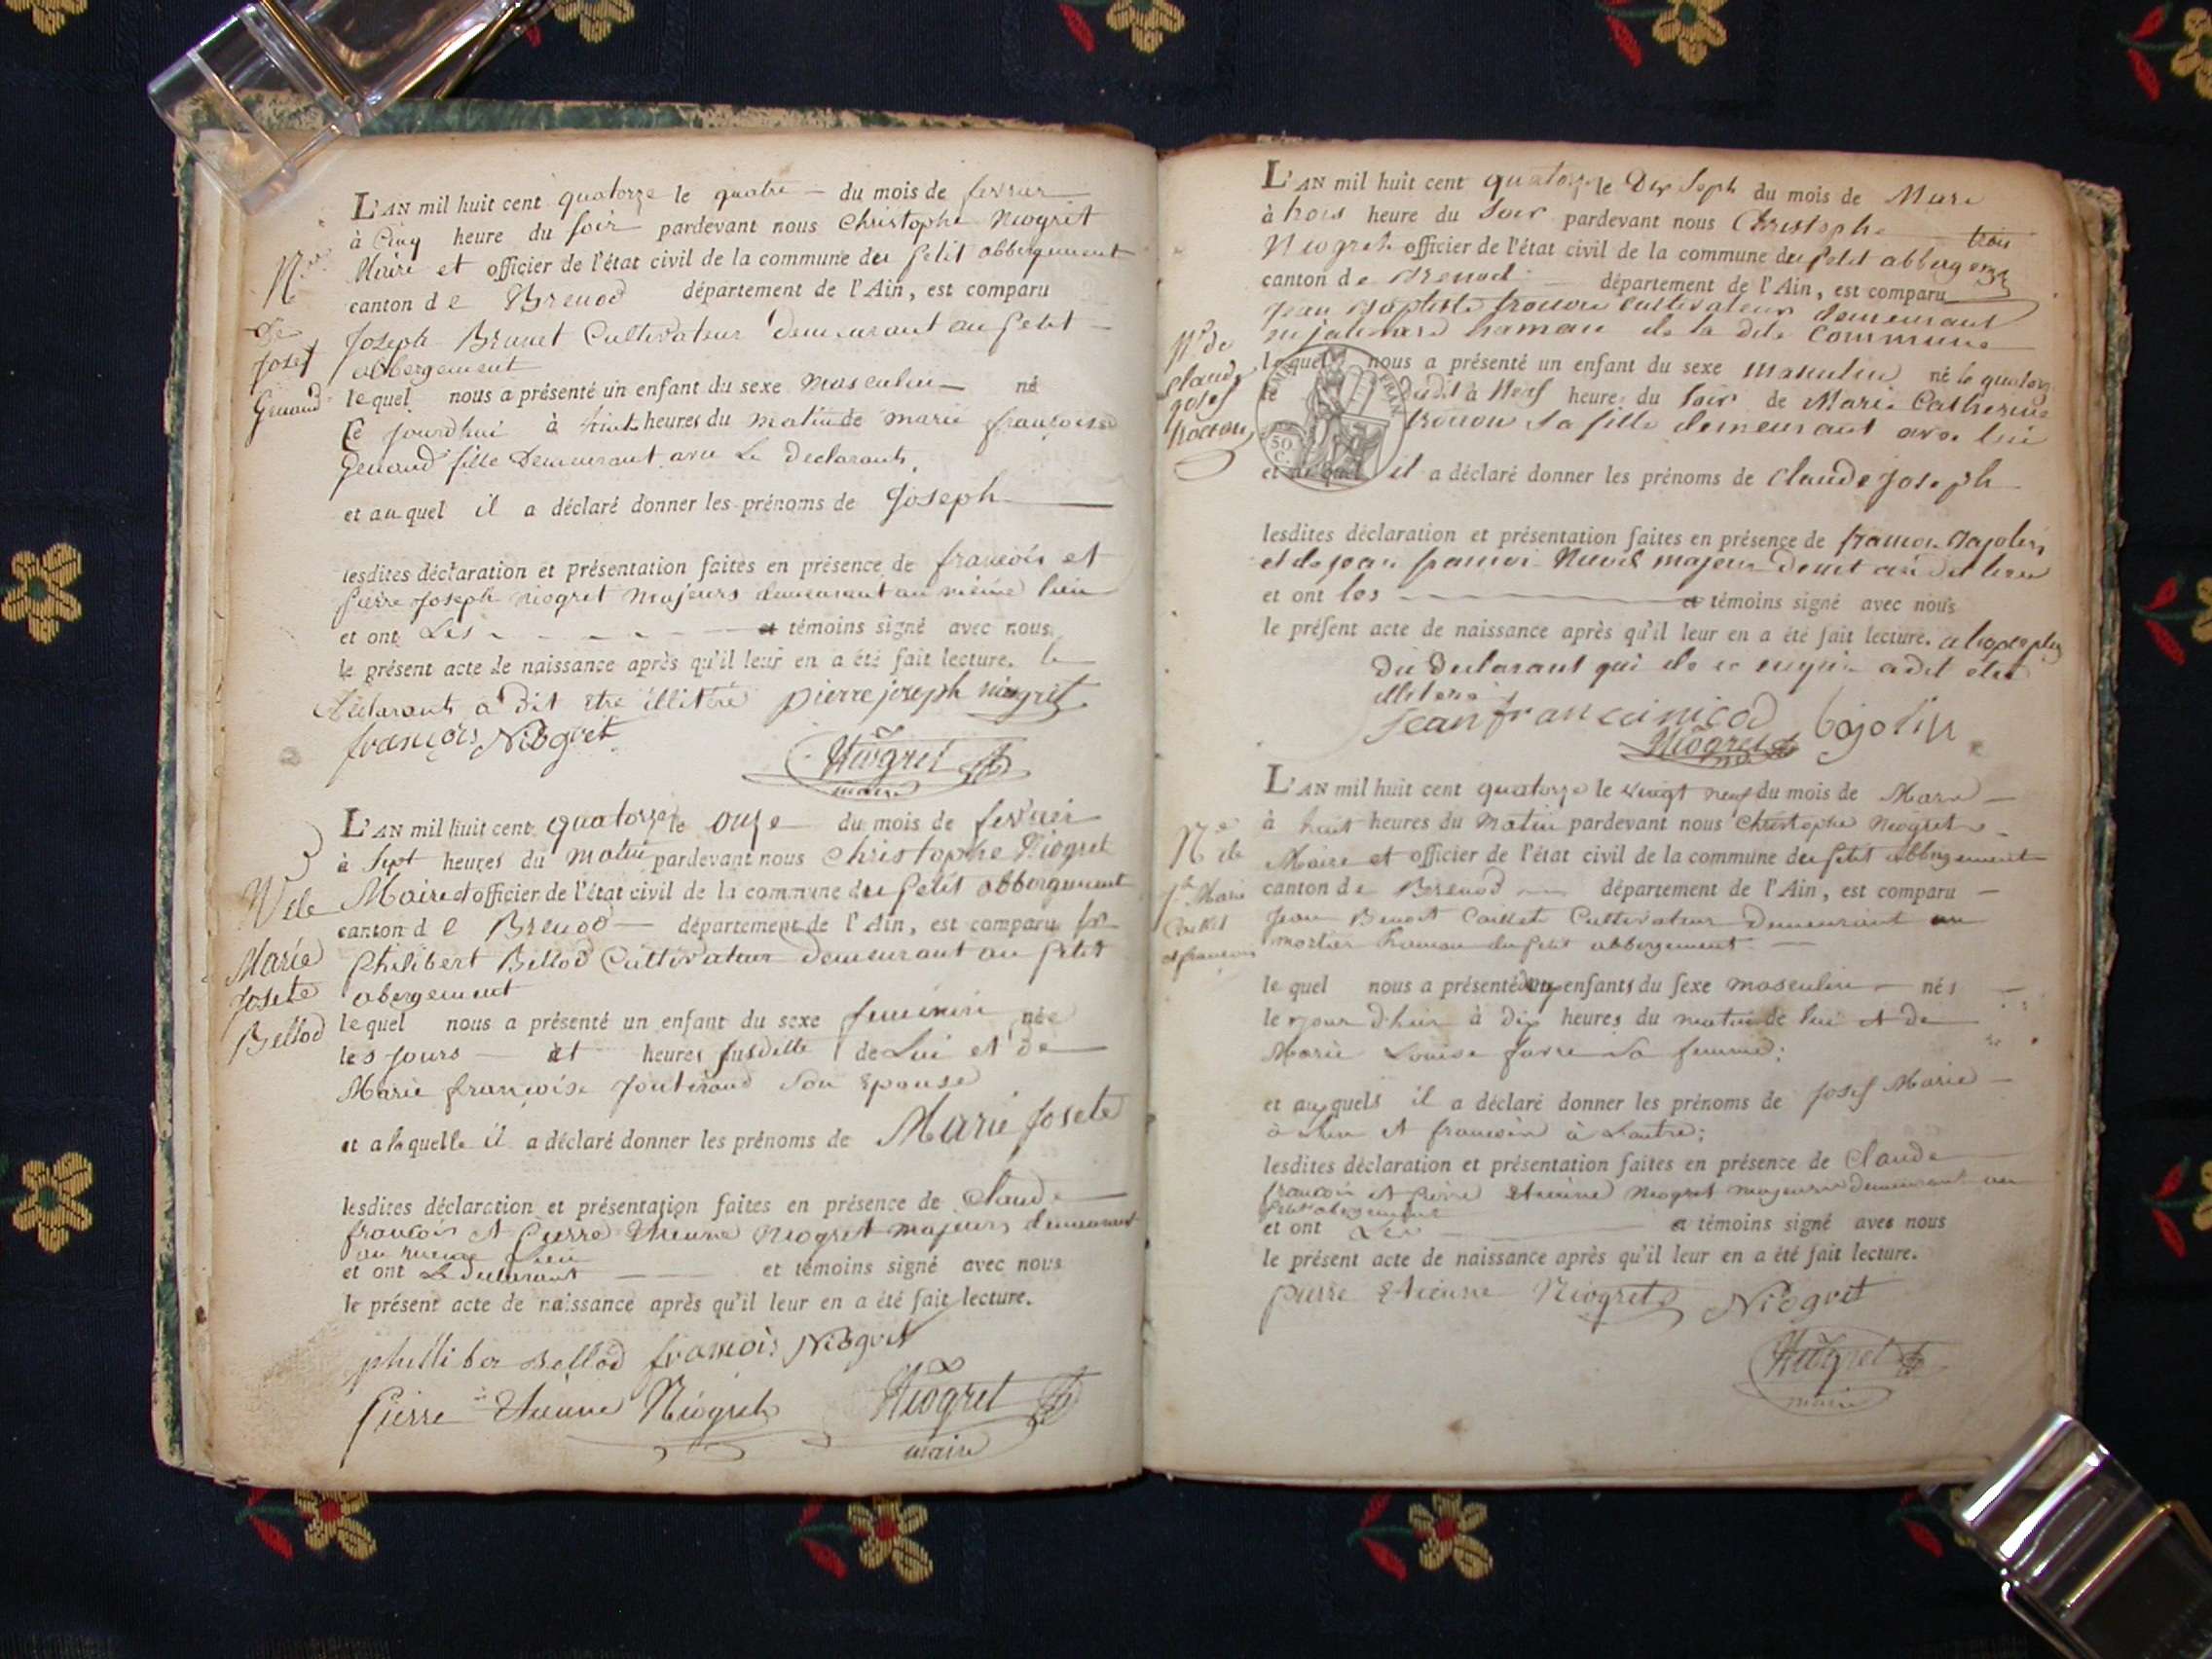 L'AN mil huit cent quatorze le quatre du mois de fevrier
à Cinq heure du soir pardevant nous Christophe Niogret
Maire et officier de l'état civil de la commune du petit abbergement
canton de Brenod département de l'Ain, est comparu
Joseph Brunet Cultivateur demeurant au petit
abbergement
lequel nous a présenté un enfant du sexe masculin né
Ce jourdhui à huit heures du matin de marie françoise
fille demeurant avec Le declarant
et auquel il a déclaré donner les prénoms de Joseph
lesdites déclaration et présentation faites en présence de francois et
pierre joseph niogret majeurs demeurant au même lieu
et ont Les et témoins signé avec nous
le présent acte de naissance après qu'il leur en a été fait lecture. le
declarant a dit etre illitéré pierre joseph niogret
françois Niogret
Niogret
maire
N
de
Josef
L'AN mil huit cent quatorze le onze du mois de fevrier
à sept heures du matin pardevant nous Christophe Niogret
Maire et officier de l'état civil de la commune du petit abbergement
canton de Brenod département de l'Ain, est comparu
Philibert Bellod Cultivateur demeurant au petit
abergement
lequel nous a présenté un enfant du sexe feminin née
les jours et heures susditte de Lui et de
Marie françoise son Epouse
et a laquelle il a déclaré donner les prénoms de Marie Josete
lesdites déclaration et présentation faites en présence de Claude
francois et Pierre Etienne Niogret majeurs demeurant
au meme Lieu
et ont Le declarant et témoins signé avec nous
le présent acte de naissance après qu'il leur en a été fait lecture.
phelliber Bellod françois Niogret
Pierre Etienne Niogret Niogret
maire
N de
Marie
Josete
Bellod
L'AN mil huit cent quatorze le Dix Sept du mois de Mars
à trois heure du Soir pardevant nous Christophe
Niogret officier de l'état civil de la commune du petit abbergement
canton de Brenod département de l'Ain, est comparu
Jean Baptiste cultivateur demeurant
hamau de la dite Commune
lequel nous a présenté un enfant du sexe masculin né le quatorze
le dudit à Neuf heure du Soir de Marie Catherine
sa fille demeurant avec lui
et auquel il a déclaré donner les prénoms de Claude Joseph
50
C.
lesdites déclaration et présentation faites en présence de
et de jean francois majeur
et ont les et témoins signé avec nous
le présent acte de naissance après qu'il leur en a été fait lecture.
du declarant qui de ce enquis a dit etre
Jean francoi nicod bojolin
Niogret
N de
Claude
Josef
L'AN mil huit cent quatorze le vingt neuf du mois de Mars
à huit heures du Matin pardevant nous Christophe Niogret
Maire et officier de l'état civil de la commune du petit abbergement
canton de Brenod département de l'Ain, est comparu
Jean Benoit Caillet Cultivateur Demeurant au
mortier hamau du petit abbergement
lequel nous a présenté deux enfants du sexe masculin nés
le jour d'hui à dix heures du matin de lui et de
Marie Louise favre Sa femme;
et auxquels il a déclaré donner les prénoms de Josef Marie
à Lun et francois à Lautre;
lesdites déclaration et présentation faites en présence de Claude
francois et Pierre Etienne Niogret majeurs demeurant au
petit abergement
et ont Les et témoins signé avec nous
le présent acte de naissance après qu'il leur en a été fait lecture.
pierre Etienne Niogret Niogret
Niogret
maire
N de
Marie
Caillet
et francois